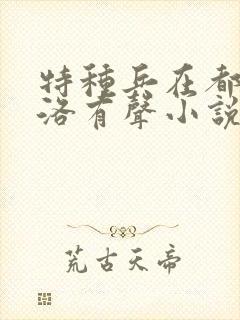 特種兵在都
洛有聲小說
荒古天帝